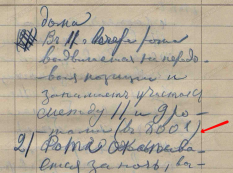 дома
В 11 ч. вечера рота
выдвигается на передо-
вые позиции и
занимает участок
между 11 и 9 ро-
тами (в 800х)
2) Рота окапыва-
ется за ночь, ва-